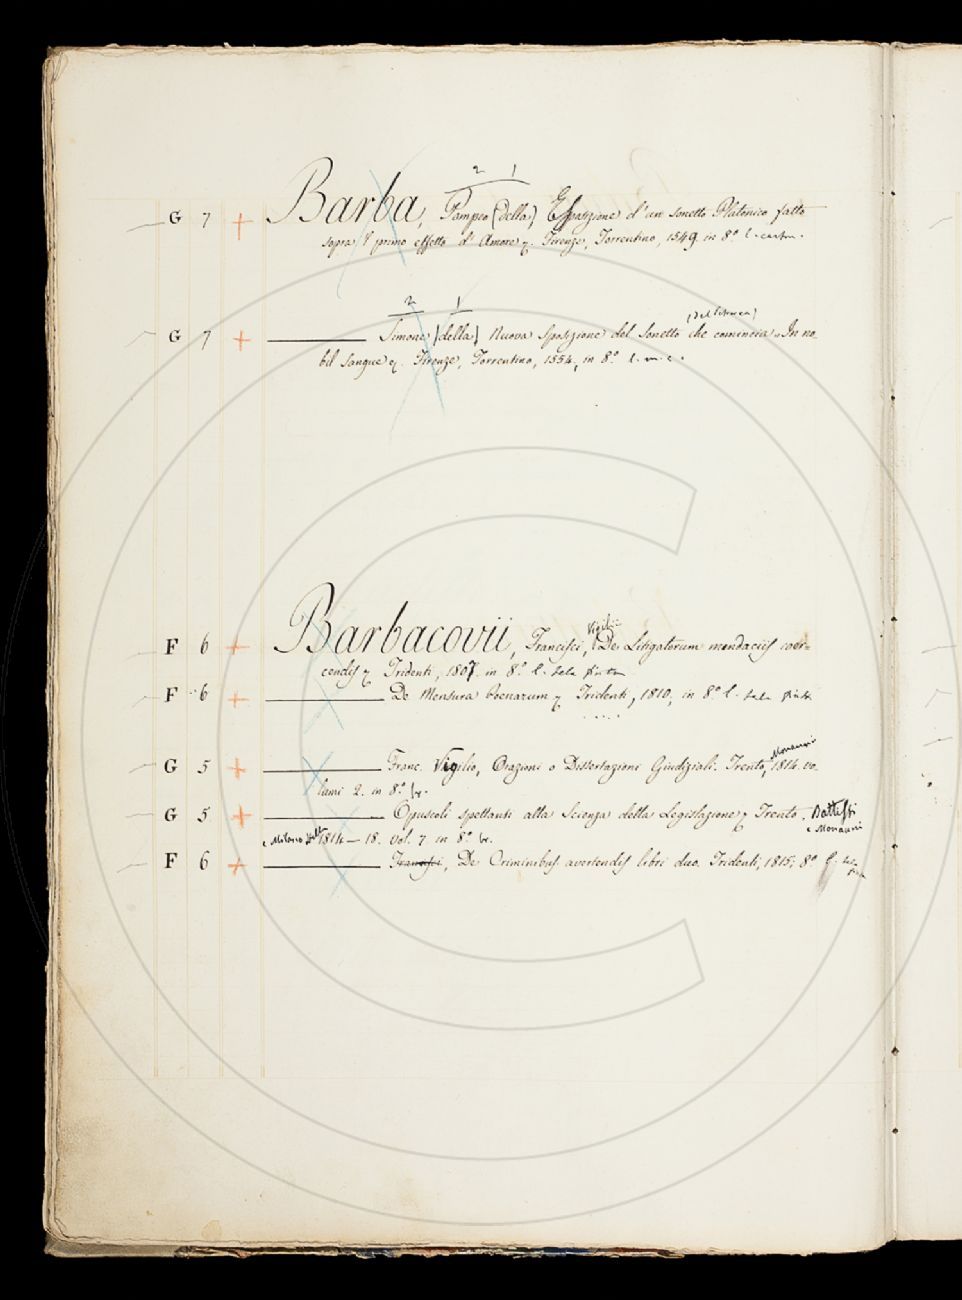 2 1
G 7 + Barba, Pompeo (della) Esposizione d'un sonetto Platonico fatto
sopra il primo effetto d'Amore &. Firenze, Torrentino, 1549. in 8.º l. cartон.
2 1
(del Petrarca)
G 7 + ——— Simone (della) Nuova Sposizione del Sonetto che comincia "In no-
bil sangue &. Firenze, Torrentino, 1554, in 8.º l. m. c.
Vigilii
F 6 + Barbacovii, Francisci, De Litigatorum mendaciis coer=
cendis & Tridenti, 1807. in 8.º l. tela tinta
F 6 + ——— De Mensura Poenarum & Tridenti, 1810, in 8.º l. tela tinta
Monauni
G 5 + ——— Franc. Vigilio, Orazioni o Dissertazioni Giudiziali. Trento, 1814. vo-
lumi 2. in 8.º br.
G 5 + ——— Opuscoli spettanti alla Scienza della Legislazione & Trento. Battisti
e Monauni
e Milano 1814–18. vol. 7. in 8.º br.
F 6 + ——— Francisci, De Criminibus avertendis libri duo. Tridenti, 1815; 8.º l. tela
tinta